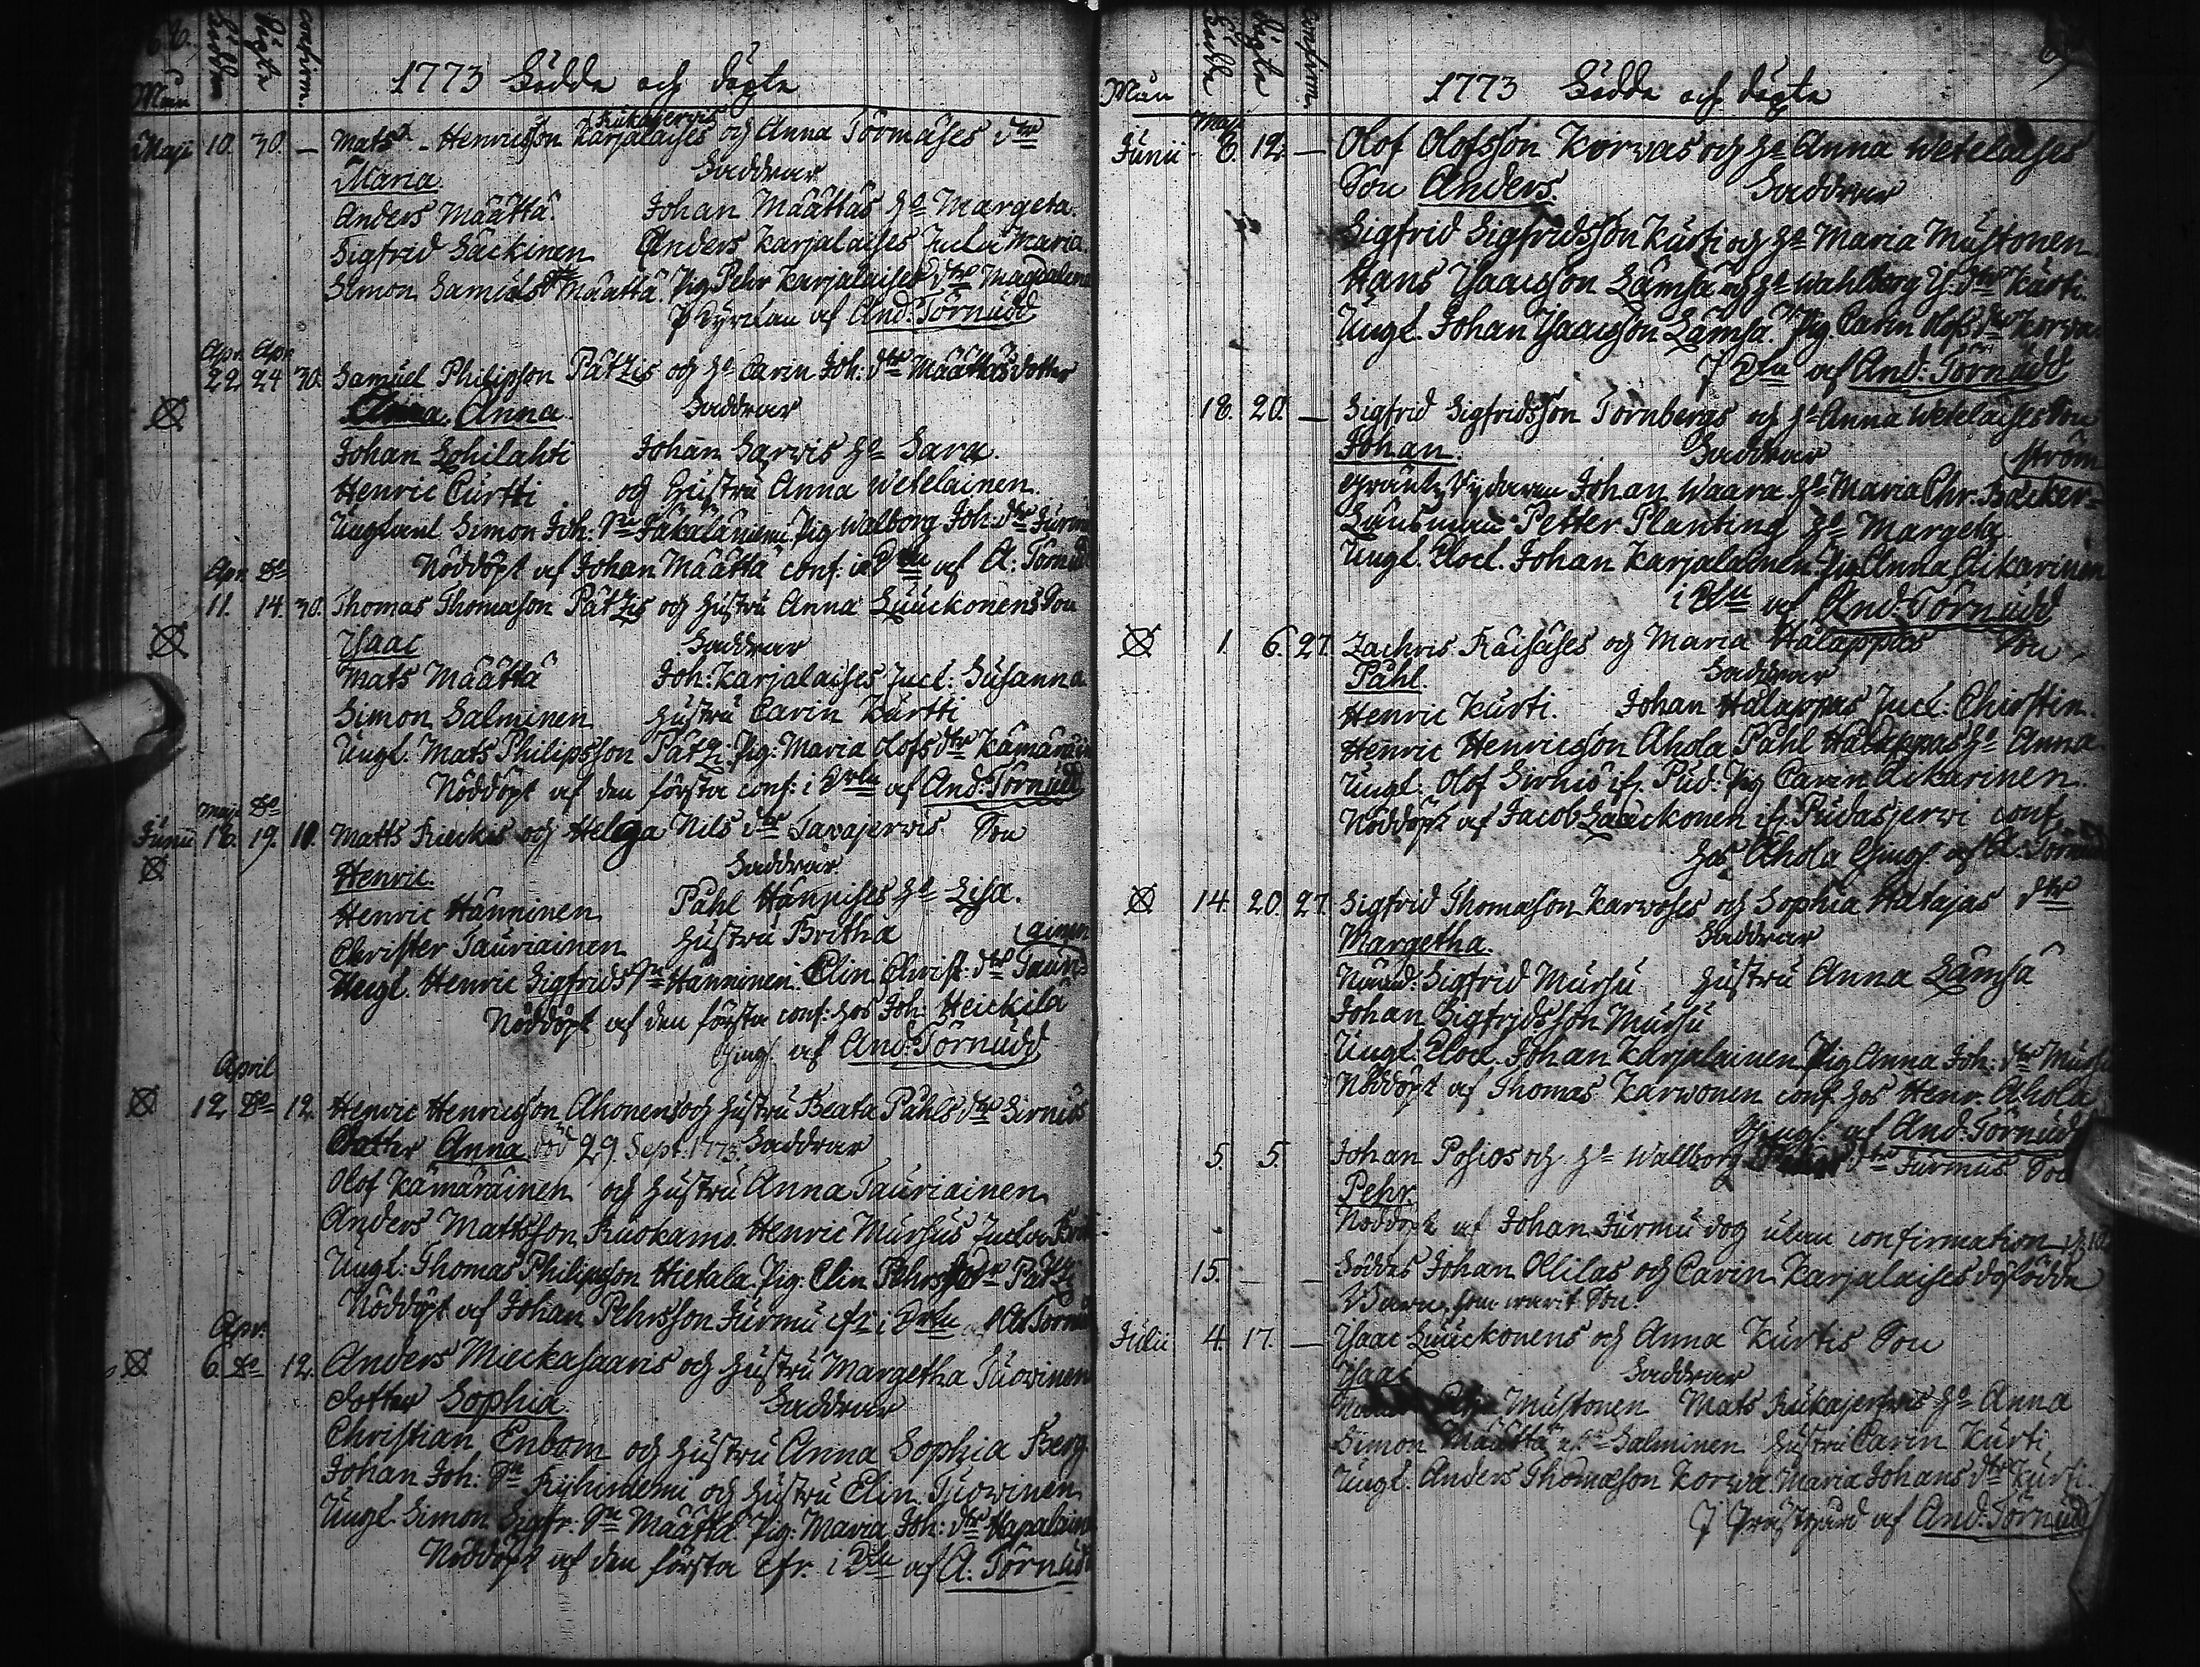 66.
Mån
Födde
Döpte
confirm.
1773 Födde och döpte
Rukajerwis
Maji 10. 30. — Mats Henricsson Karjalaises och Anna Törmäses dtr
Maria. Faddrar
Anders Määttä. Johan Määttäs H:o Margeta.
Sigfrid Säckinen Anders Karjalaises Enka Maria
Simon Samuels Sn Määttä. Pig. Pehr Karjalaises dtr Magdalena
I Kyrckan af And: Törnudd
Apr. Apr.
22 24 30. Samuel Philipsson Pätzis och H:o Carin Joh: dtr Määttäs dotter
Anna. Faddrar
Johan Lohilahti Johan Sarwis H:o Sara.
Henric Curtti och Hustru Anna Wetelainen.
Ungkarl Simon Joh: Sn Pig Walborg Joh: dtr Jurmu
Nöddöpt af Johan Määttä conf: i af A: Törnudd
Apr. Do
11. 14. 30. Thomas Thomasson Pätzis och Hustru Anna Luuckonens Son
Isaac Faddrar
Mats Määttä Joh: Karjalaises Enck: Susanna
Simon Salminen Hustru Carin Kurtti
Ungk. Mats Philipsson Pätz. Pig: Maria Olofs dtr Kämäräin
Nöddöpt af den första conf: i af And: Törnudd
Maji Do
Junii 16. 19. 10. Matts Rieckis och Helga Nils dtr Tavajerwis Son
Henric. Faddrar
Henric Hänninen Påhl Hännises H:o Lisa.
Christer Tauriainen Hustru Britha
Ungk. Henric Sigfrids Sn Hänninen. Elin Christ: dtr Tauri (ainen
Nöddöpt af den första conf: hos Joh: Heickilä
Gingl. af And: Törnudd
April
12 Do 12. Henric Henricsson Ahonens och Hustru Beata Påhls dtr Sirniös
dotter Anna. död 29 Sept. 1773. Faddrar
Olof Kämäräinen och Hustru Anna Tauriainen
Anders Mattsson Ruokamo Henric Mursus Enka
Ungk: Thomas Philipsson Hietala. Pig: Elin Pehrs dtr Pätzi
Nöddöpt af Johan Pehrsson Jurmu cfr i af A: Törnudd
Apr.
6. Do 12. Anders Mieckasaaris och Hustru Margetha Tuovinen
dotter Sophia Faddrar
Christian Enbom och Hustru Anna Sophia Berg
Johan Joh: Sn Ryhinlemi och Hustru Elin Tuowinen
Ungk. Simon Sigfr: Sn Määttä. Pig: Maria Joh: dtr Hapalain
Nöddöpt af den första cfr. i af A: Törnudd
Mån
Födde
Döpte
confirm.
1773 Födde och döpte
Maji
Junii 6. 12. — Olof Olofsson Korvas och H:o Anna Wetelaises
Son Anders. Faddrar
Sigfrid Sigfridsson Kurti och H:o Maria Mustonen
Hans Isaacsson Lämsä och H:o Wahlborg Is: dtr Kurti.
Ungk. Johan Isaacsson Lämsä. Pig. Carin Olofs dtr Korva
I af And: Törnudd
18. 20. — Sigfrid Sigfridsson Tornbergs och H:o Anna Wetelaises Son
Johan. Faddrar (ström
Johan Waara H:o Maria Chr. Bäcker-
Länsman Petter Planting H:o Margeta.
Ungk. Clock. Johan Karjalainen. Pig Anna Aikarinen
i af And: Törnudd
1. 6. 27. Zachris Räisäses och Maria Halappas Son
Påhl. Faddrar
Henric Kurti. Johan Halappas Enck: Chirstin.
Henric Henricsson Ahola Påhl Halappas H:o Anna
Ungk: Olof Sirniö if: Pud: Pig Carin Aikarinen.
Nöddöpt af Jacob Luuckonen if: Pudasjerwi conf.
hos Ahola Gingl. af A: Törnudd
14. 20. 27. Sigfrid Thomasson Karwoses och Sophia Hatajas dtr
Margetha. Faddrar
Nämd: Sigfrid Mursu Hustru Anna Lämsä
Johan Sigfridsson Mursu
Ungk: Clock. Johan Karjalainen Pig Anna Joh: dtr Mursu
Nöddöpt af Thomas Karwonen conf. hos Henr. Ahola
Gingl. af And: Törnudd
5. 5. Johan Posios och H:o Wallborg dtr Jurmus Son
Pehr.
Nöddöpt af Johan Jurmu dog utan confirmation
15. — — Föddes Johan Ollilas och Carin Karjalaises dödfödda
Barn, som warit Son.
Julii 4. 17. — Isaac Luuckonens och Anna Kurtis Son
Isaac Faddrar
Mustonen Mats Rukajerfwis H:o Anna
Simon Määttä Salminen Hustru Carin Kurti,
Ungk. Anders Thomasson Korwa. Maria Johans dtr Kurti.
I Prästgård af And: Törnudd